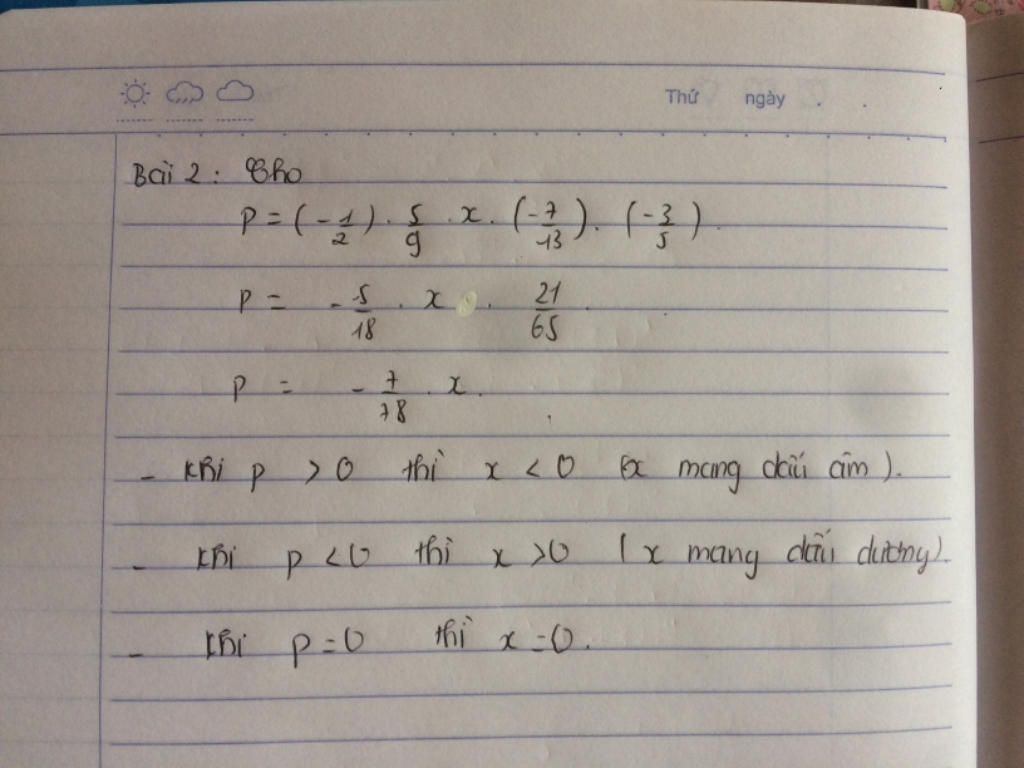 Thứ ngày
Bài 2: Cho
P = (-1/2) . 5/9 . x . (-7/13) . (-3/5).
P = -5/18 . x . 21/65 .
P = -7/78 . x.
- Khi P > 0 thì x < 0 (x mang dấu âm).
- Khi P < 0 thì x > 0 (x mang dấu dương).
- Khi P = 0 thì x = 0.